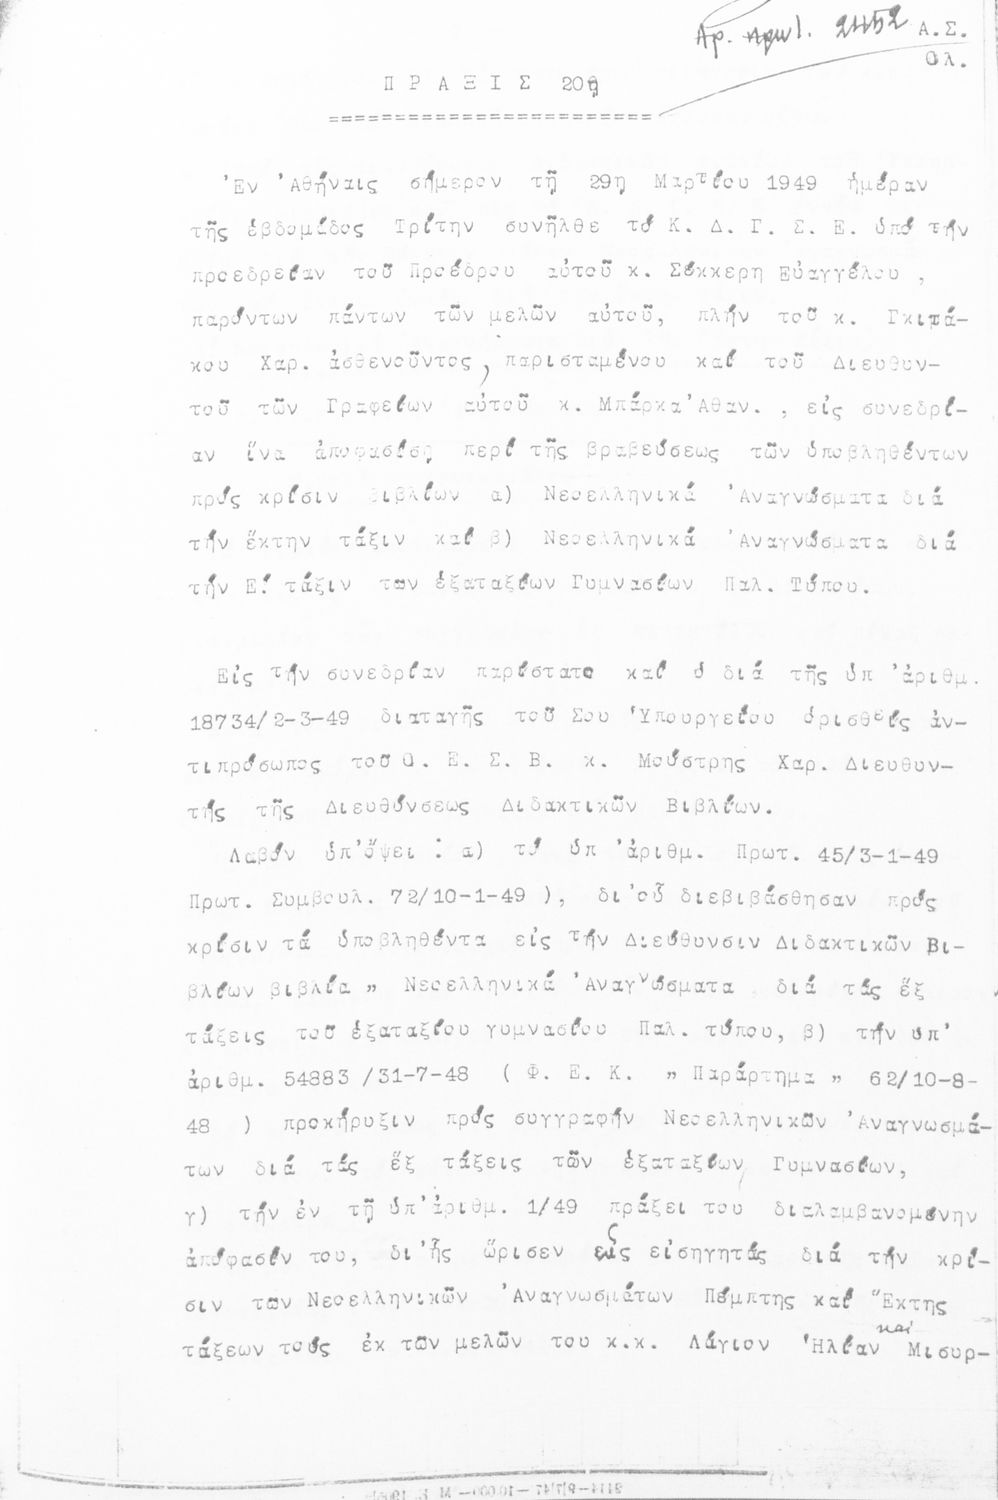 Αρ. πρωτ. 2452 Α.Σ.
Ολ.
Π Ρ Α Ξ Ι Σ 20ῃ
=========================
Ἐν Ἀθήναις σήμερον τῇ 29η Μαρτίου 1949 ἡμέραν
τῆς ἑβδομάδος Τρίτην συνῆλθε τό Κ. Δ. Γ. Σ. Ε. ὑπό τήν
προεδρείαν τοῦ Προέδρου αὐτοῦ κ. Σέκκερη Εὐαγγέλου ,
παρόντων πάντων τῶν μελῶν αὐτοῦ, πλήν τοῦ κ. Γκιτά-
κου Χαρ. ἀσθενοῦντος, παρισταμένου καί τοῦ Διευθυν-
τοῦ τῶν Γραφείων αὐτοῦ κ. Μπάρκα Ἀθαν. , εἰς συνεδρί-
αν ἵνα ἀποφασίσῃ περί τῆς βραβεύσεως τῶν ὑποβληθέντων
πρός κρίσιν βιβλίων α) Νεοελληνικά Ἀναγνώσματα διά
τήν ἕκτην τάξιν καί β) Νεοελληνικά Ἀναγνώσματα διά
τήν Ε! τάξιν των ἑξαταξίων Γυμνασίων Παλ. Τύπου.
Εἰς τήν συνεδρίαν παρίστατο καί ὁ διά τῆς ὑπ ' ἀριθμ.
18734/2-3-49 διαταγῆς τοῦ Σου Ὑπουργείου ὁρισθείς ἀν-
τιπρόσωπος τοῦ Ο. Ε. Σ. Β. κ. Μούστρης Χαρ. Διευθυν-
τής τῆς Διευθύνσεως Διδακτικῶν Βιβλίων.
Λαβόν ὑπ'ὄψει : α) τό ὑπ ' ἀριθμ. Πρωτ. 45/3-1-49
Πρωτ. Συμβουλ. 72/10-1-49 ), δι'οὗ διεβιβάσθησαν πρός
κρίσιν τά ὑποβληθέντα εἰς τήν Διεύθυνσιν Διδακτικῶν Βι-
βλίων βιβλία „ Νεοελληνικά Ἀναγνώσματα διά τάς ἕξ
τάξεις τοῦ ἑξαταξίου γυμνασίου Παλ. τύπου, β) τήν ὑπ'
ἀριθμ. 54883 /31-7-48 ( Φ. Ε. Κ. „ Παράρτημα „ 62/10-8-
48 ) προκήρυξιν πρός συγγραφήν Νεοελληνικῶν Ἀναγνωσμά-
των διά τάς ἕξ τάξεις τῶν ἑξαταξίων Γυμνασίων,
γ) τήν ἐν τῇ ὑπ' ἀριθμ. 1/49 πράξει του διαλαμβανομένην
ἀπόφασίν του, δι'ἧς ὥρισεν εἰς εἰσηγητάς διά τήν κρί-
σιν των Νεοελληνικῶν Ἀναγνωσμάτων Πέμπτης καί Ἕκτης
τάξεων τούς ἐκ τῶν μελῶν του κ.κ. Λάγιον Ἠλίαν καί Μισυρ-